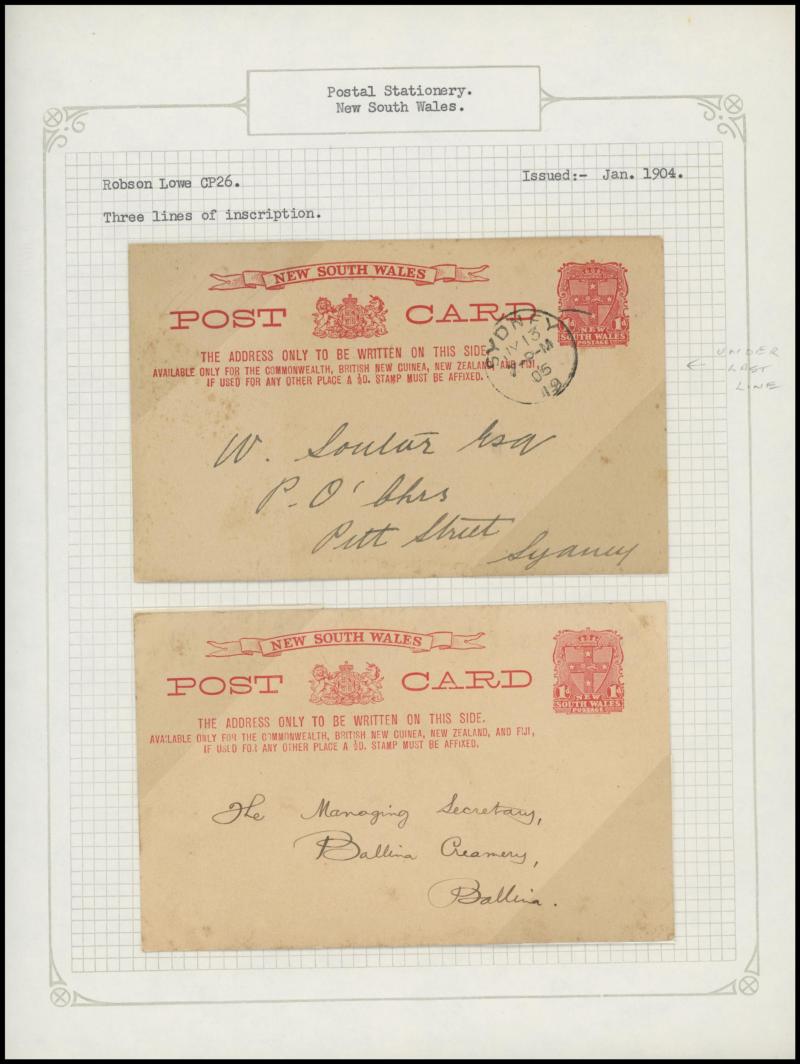 Postal Stationery.
New South Wales.
Robson Lowe CP26.
Issued:- Jan. 1904.
Three lines of inscription.
NEW SOUTH WALES
POST CARD
1D
NEW
SOUTH WALES
POSTAGE
THE ADDRESS ONLY TO BE WRITTEN ON THIS SIDE.
AVAILABLE ONLY FOR THE COMMONWEALTH, BRITISH NEW GUINEA, NEW ZEALAND, AND FIJI,
IF USED FOR ANY OTHER PLACE A ½D. STAMP MUST BE AFFIXED.
SYDNEY
13
P-M
05
19
← UNDER
LAST
LINE
W. Soutar Esq
P. O' Chrs
Pitt Street
Sydney
NEW SOUTH WALES
POST CARD
1D
NEW
SOUTH WALES
POSTAGE
THE ADDRESS ONLY TO BE WRITTEN ON THIS SIDE.
AVAILABLE ONLY FOR THE COMMONWEALTH, BRITISH NEW GUINEA, NEW ZEALAND, AND FIJI,
IF USED FOR ANY OTHER PLACE A ½D. STAMP MUST BE AFFIXED.
The Managing Secretary,
Ballina Creamery,
Ballina.